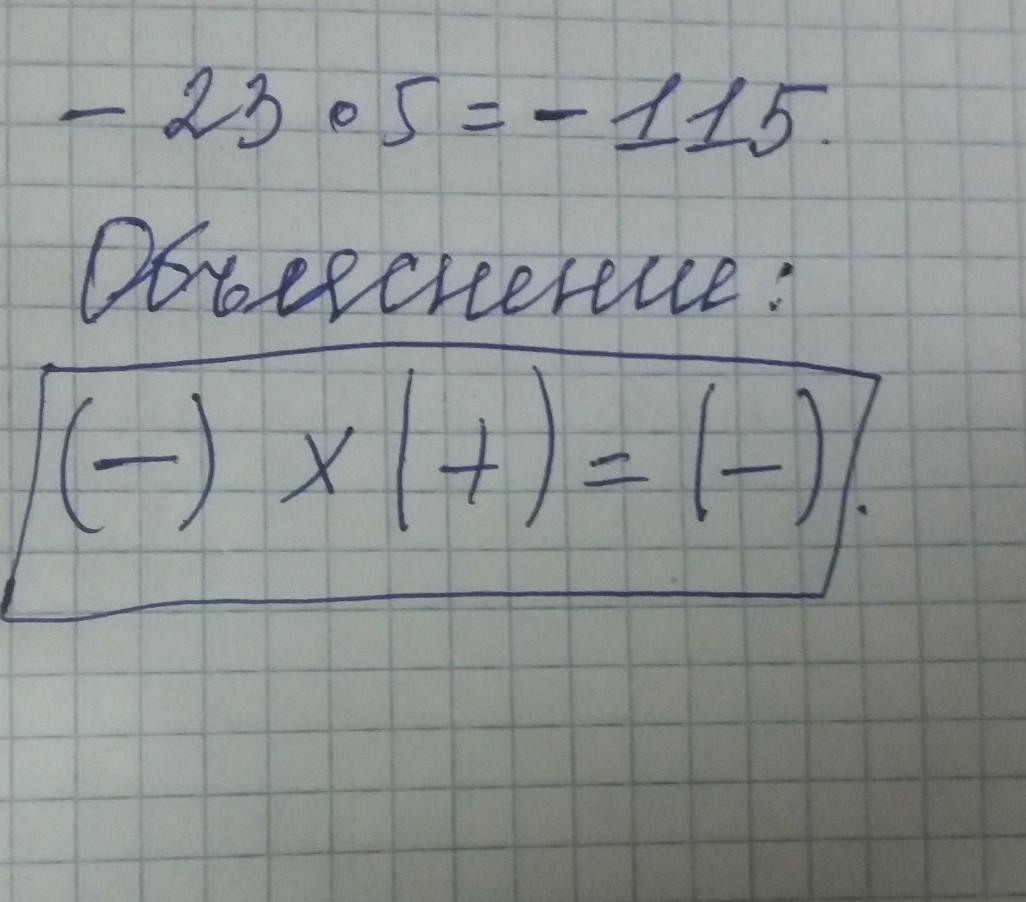 - 23 • 5 = - 115.
Объяснение:
(-) × (+) = (-).